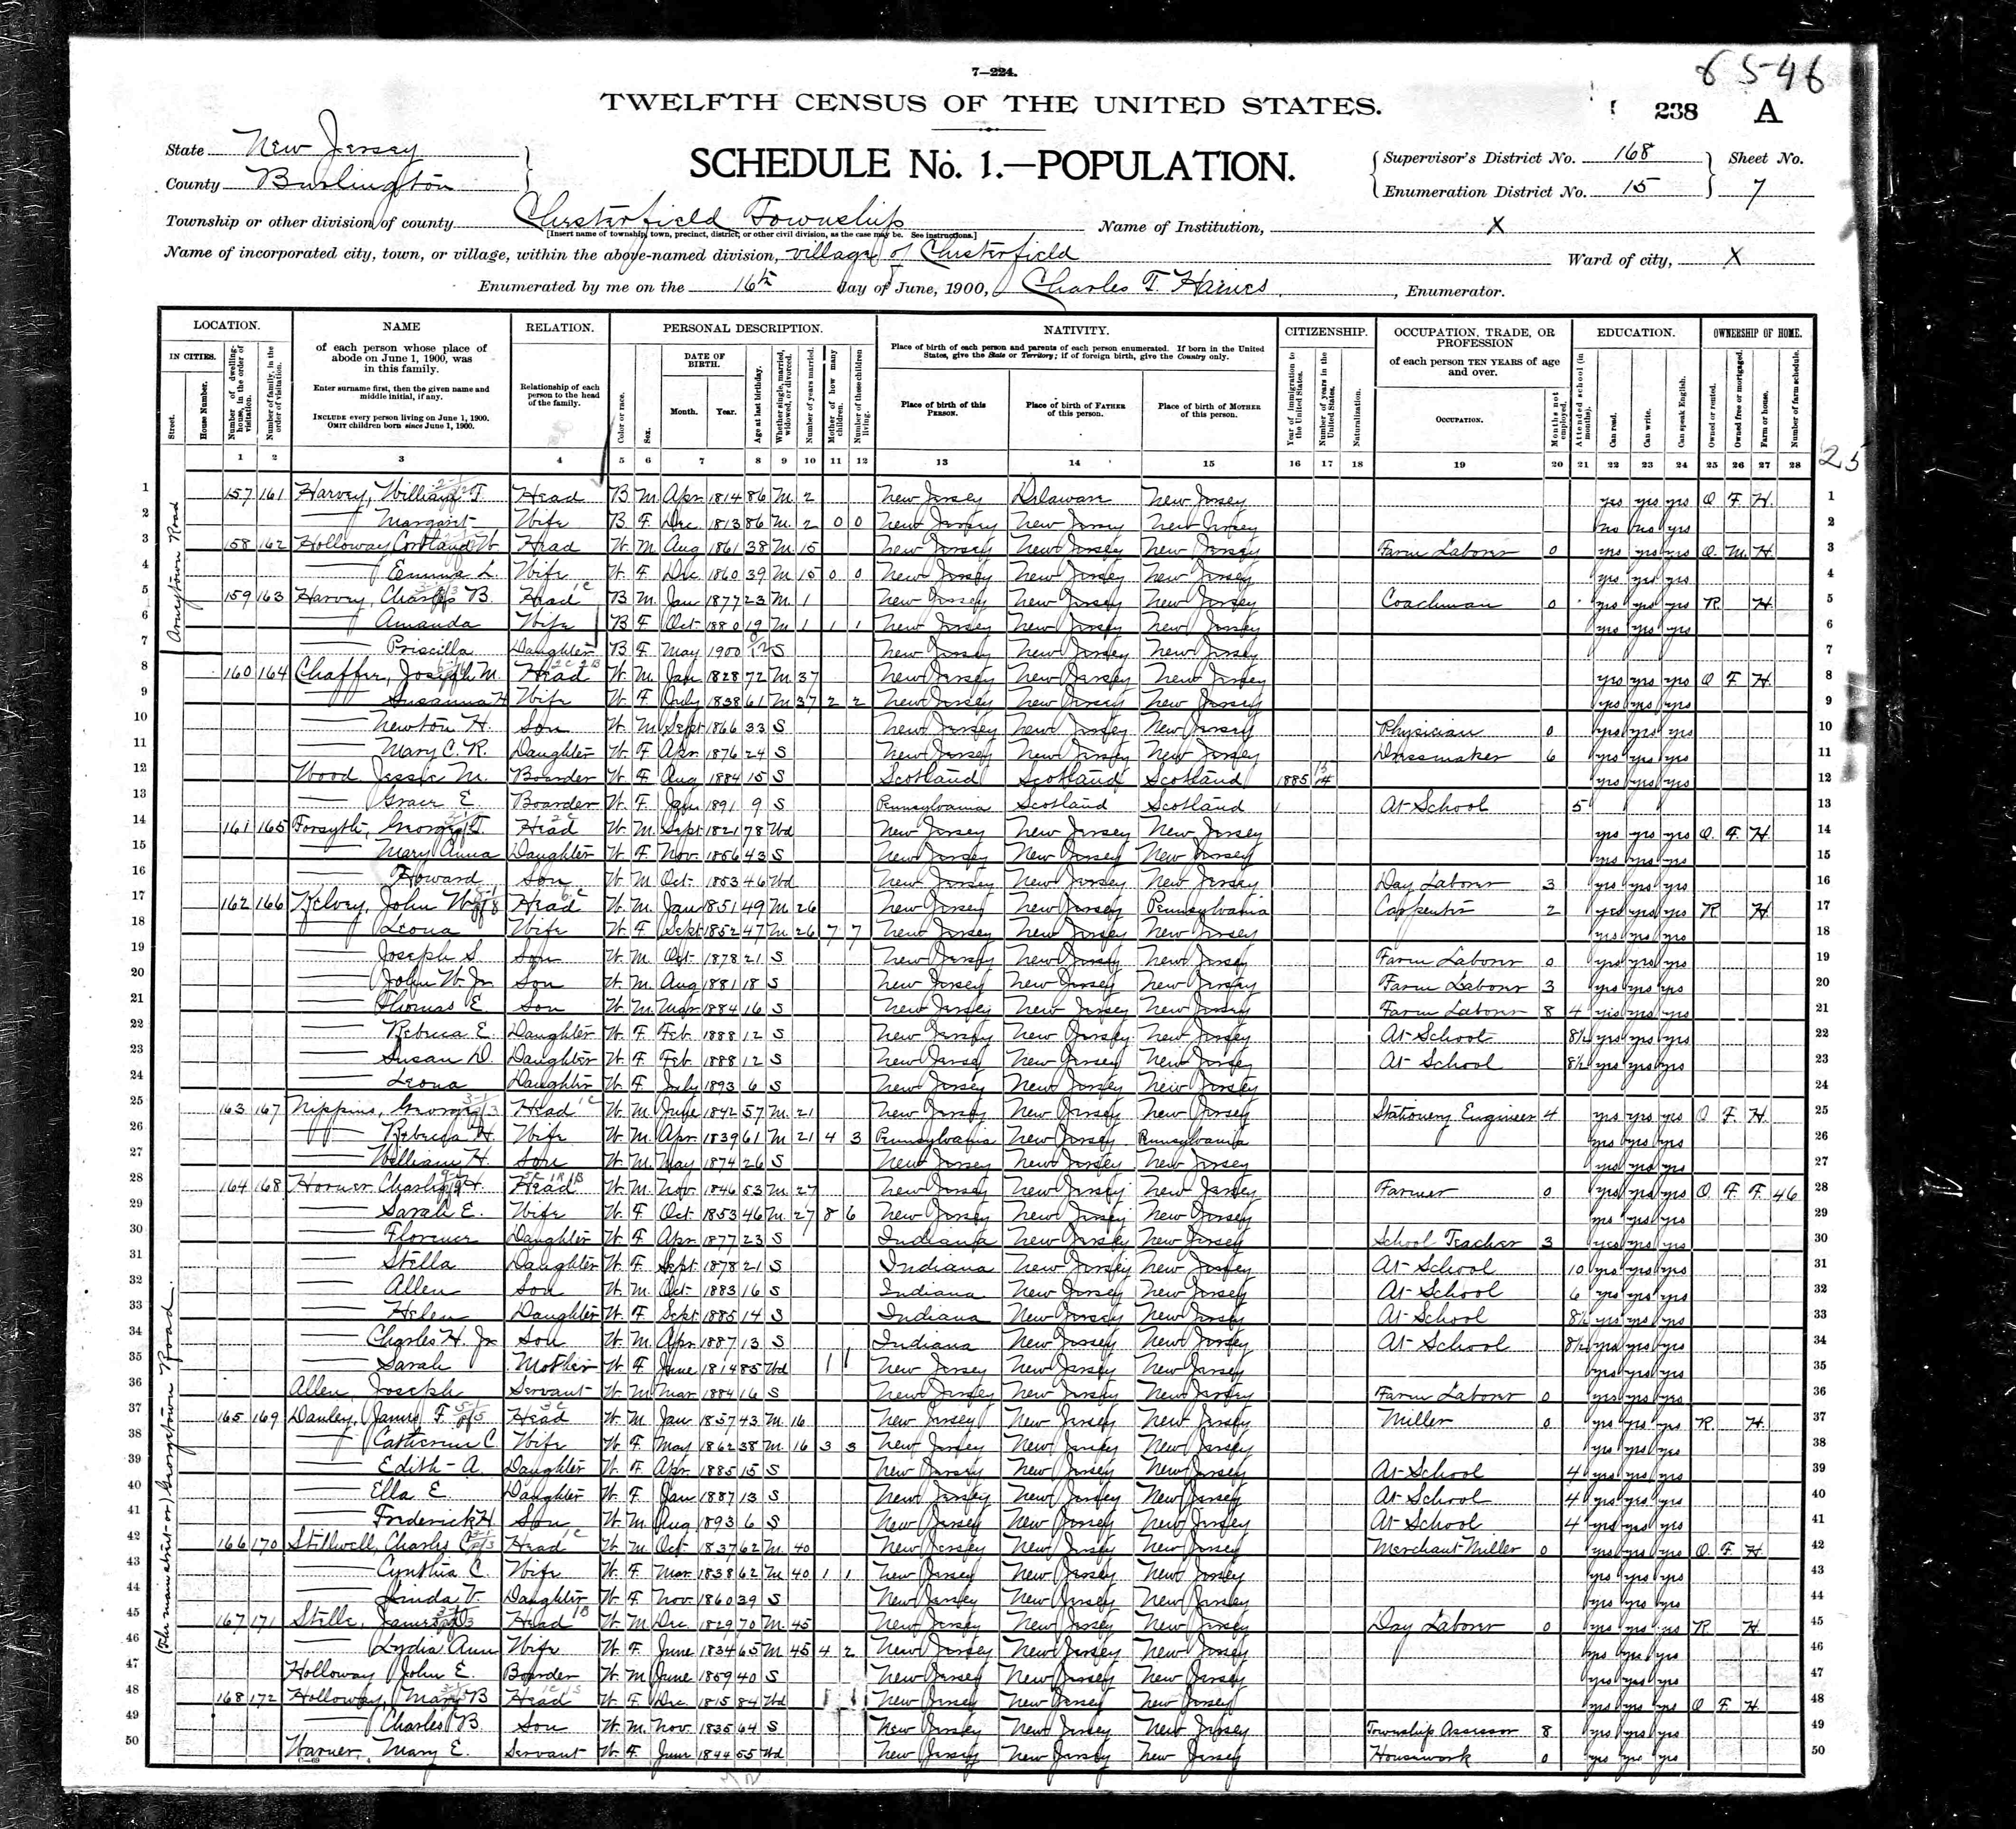 7—224.
6546
TWELFTH CENSUS OF THE UNITED STATES.
238 A
State New Jersey
County Burlington
SCHEDULE No. 1.—POPULATION.
Supervisor's District No. 168
Enumeration District No. 15
Sheet No. 7
Township or other division of county Chesterfield Township
[Insert name of township, town, precinct, district, or other civil division, as the case may be. See instructions.]
Name of Institution, X
Name of incorporated city, town, or village, within the above-named division, village of Chesterfield
Ward of city, X
Enumerated by me on the 16th day of June, 1900, Charles T. Haines, Enumerator.
LOCATION. NAME RELATION. PERSONAL DESCRIPTION. NATIVITY. CITIZENSHIP. OCCUPATION, TRADE, OR PROFESSION EDUCATION. OWNERSHIP OF HOME.
IN CITIES. Street. House Number. Number of dwelling-house, in the order of visitation. Number of family, in the order of visitation.
of each person whose place of abode on June 1, 1900, was in this family.
Enter surname first, then the given name and middle initial, if any.
INCLUDE every person living on June 1, 1900.
OMIT children born since June 1, 1900.
Relationship of each person to the head of the family.
Color or race. Sex. DATE OF BIRTH. Month. Year. Age at last birthday. Whether single, married, widowed, or divorced. Number of years married. Mother of how many children. Number of these children living.
Place of birth of each person and parents of each person enumerated. If born in the United States, give the State or Territory; if of foreign birth, give the Country only.
Place of birth of this PERSON. Place of birth of FATHER of this person. Place of birth of MOTHER of this person.
Year of immigration to the United States. Number of years in the United States. Naturalization.
of each person TEN YEARS of age and over.
OCCUPATION. Months not employed.
Attended school (in months). Can read. Can write. Can speak English.
Owned or rented. Owned free or mortgaged. Farm or house. Number of farm schedule.
1 2 3 4 5 6 7 8 9 10 11 12 13 14 15 16 17 18 19 20 21 22 23 24 25 26 27 28
25
Arneytown Road
1 157 161 Harvey, William T. Head B M Apr 1814 86 M 2 New Jersey Delaware New Jersey yes yes yes O F H 1
2 — Margaret Wife B F Dec 1813 86 M 2 0 0 New Jersey New Jersey New Jersey no no yes 2
3 158 162 Holloway Cortland W Head W M Aug 1861 38 M 15 New Jersey New Jersey New Jersey Farm Laborer 0 yes yes yes O M H 3
4 — Emma L. Wife W F Dec 1860 39 M 15 0 0 New Jersey New Jersey New Jersey yes yes yes 4
5 159 163 Harvey, Charles B. Head B M Jan 1877 23 M 1 New Jersey New Jersey New Jersey Coachman 0 yes yes yes R H 5
6 — Amanda Wife B F Oct 1880 19 M 1 1 1 New Jersey New Jersey New Jersey yes yes yes 6
7 — Priscilla Daughter B F May 1900 0/12 S New Jersey New Jersey New Jersey 7
8 160 164 Chaffer, Joseph M. Head W M Jan 1828 72 M 37 New Jersey New Jersey New Jersey yes yes yes O F H 8
9 — Susanna H Wife W F July 1838 61 M 37 2 2 New Jersey New Jersey New Jersey yes yes yes 9
10 — Newton H. Son W M Sept 1866 33 S New Jersey New Jersey New Jersey Physician 0 yes yes yes 10
11 — Mary C. R. Daughter W F Apr 1876 24 S New Jersey New Jersey New Jersey Dressmaker 6 yes yes yes 11
12 Wood Jessie M. Boarder W F Aug 1884 15 S Scotland Scotland Scotland 1885 yes yes yes 12
13 — Grace E. Boarder W F Jan 1891 9 S Pennsylvania Scotland Scotland At School 5 13
14 161 165 Forsyth, George T. Head W M Sept 1821 78 Wd New Jersey New Jersey New Jersey yes yes yes O F H 14
15 — Mary Anna Daughter W F Nov 1856 43 S New Jersey New Jersey New Jersey yes yes yes 15
16 — Howard Son W M Oct 1853 46 Wd New Jersey New Jersey New Jersey Day Laborer 3 yes yes yes 16
17 162 166 Kelvey, John W Head W M Jan 1851 49 M 26 New Jersey New Jersey Pennsylvania Carpenter 2 yes yes yes R H 17
18 — Leona Wife W F Sept 1852 47 M 26 7 7 New Jersey New Jersey New Jersey yes yes yes 18
19 — Joseph S. Son W M Oct 1878 21 S New Jersey New Jersey New Jersey Farm Laborer 0 yes yes yes 19
20 — John W. Jr Son W M Aug 1881 18 S New Jersey New Jersey New Jersey Farm Laborer 3 yes yes yes 20
21 — Thomas E. Son W M Mar 1884 16 S New Jersey New Jersey New Jersey Farm Laborer 8 4 yes yes yes 21
22 — Rebecca E. Daughter W F Feb 1888 12 S New Jersey New Jersey New Jersey At School 8½ yes yes yes 22
23 — Susan D. Daughter W F Feb 1888 12 S New Jersey New Jersey New Jersey At School 8½ yes yes yes 23
24 — Leona Daughter W F July 1893 6 S New Jersey New Jersey New Jersey 24
25 163 167 Nippins, George Head W M June 1842 57 M 21 New Jersey New Jersey New Jersey Stationery Engineer 4 yes yes yes O F H 25
26 — Rebecca H. Wife W M Apr 1839 61 M 21 4 3 Pennsylvania New Jersey Pennsylvania yes yes yes 26
27 — William H. Son W M May 1874 26 S New Jersey New Jersey New Jersey yes yes yes 27
28 164 168 Horner Charles H. Head W M Nov 1846 53 M 27 New Jersey New Jersey New Jersey Farmer 0 yes yes yes O F F 46 28
29 — Sarah E. Wife W F Oct 1853 46 M 27 8 6 New Jersey New Jersey New Jersey yes yes yes 29
30 — Florence Daughter W F Apr 1877 23 S Indiana New Jersey New Jersey School Teacher 3 yes yes yes 30
31 — Stella Daughter W F Sept 1878 21 S Indiana New Jersey New Jersey At School 10 yes yes yes 31
32 — Allen Son W M Oct 1883 16 S Indiana New Jersey New Jersey At School 6 yes yes yes 32
33 — Helen Daughter W F Sept 1885 14 S Indiana New Jersey New Jersey At School 8½ yes yes yes 33
34 — Charles H. Jr Son W M Apr 1887 13 S Indiana New Jersey New Jersey At School 8½ yes yes yes 34
35 — Sarah Mother W F June 1814 85 Wd 1 1 New Jersey New Jersey New Jersey yes yes yes 35
36 Allen, Joseph Servant W M Mar 1884 16 S New Jersey New Jersey New Jersey Farm Laborer 0 yes yes yes 36
(The main street or) Georgetown Road.
37 165 169 Danley, James F. Head W M Jan 1857 43 M 16 New Jersey New Jersey New Jersey Miller 0 yes yes yes R H 37
38 — Catherine C. Wife W F May 1862 38 M 16 3 3 New Jersey New Jersey New Jersey yes yes yes 38
39 — Edith A. Daughter W F Apr 1885 15 S New Jersey New Jersey New Jersey At School 4 yes yes yes 39
40 — Ella E. Daughter W F Jan 1887 13 S New Jersey New Jersey New Jersey At School 4 yes yes yes 40
41 — Frederick H Son W M Aug 1893 6 S New Jersey New Jersey New Jersey At School 4 yes yes yes 41
42 166 170 Stillwell, Charles C Head W M Oct 1837 62 M 40 New Jersey New Jersey New Jersey Merchant Miller 0 yes yes yes O F H 42
43 — Cynthia C. Wife W F Mar 1838 62 M 40 1 1 New Jersey New Jersey New Jersey yes yes yes 43
44 — Linda V. Daughter W F Nov 1860 39 S New Jersey New Jersey New Jersey yes yes yes 44
45 167 171 Stille, James Head W M Dec 1829 70 M 45 New Jersey New Jersey New Jersey Day Laborer 0 yes yes yes R H 45
46 — Lydia Ann Wife W F June 1834 65 M 45 4 2 New Jersey New Jersey New Jersey yes yes yes 46
47 Holloway John E. Boarder W M June 1859 40 S New Jersey New Jersey New Jersey yes yes yes 47
48 168 172 Holloway, Mary B Head W F Dec 1815 84 Wd 1 1 New Jersey New Jersey New Jersey yes yes yes O F H 48
49 — Charles B. Son W M Nov 1835 64 S New Jersey New Jersey New Jersey Township Assessor 8 yes yes yes 49
50 Warner, Mary E. Servant W F June 1844 55 Wd New Jersey New Jersey New Jersey Housework 0 yes yes yes 50